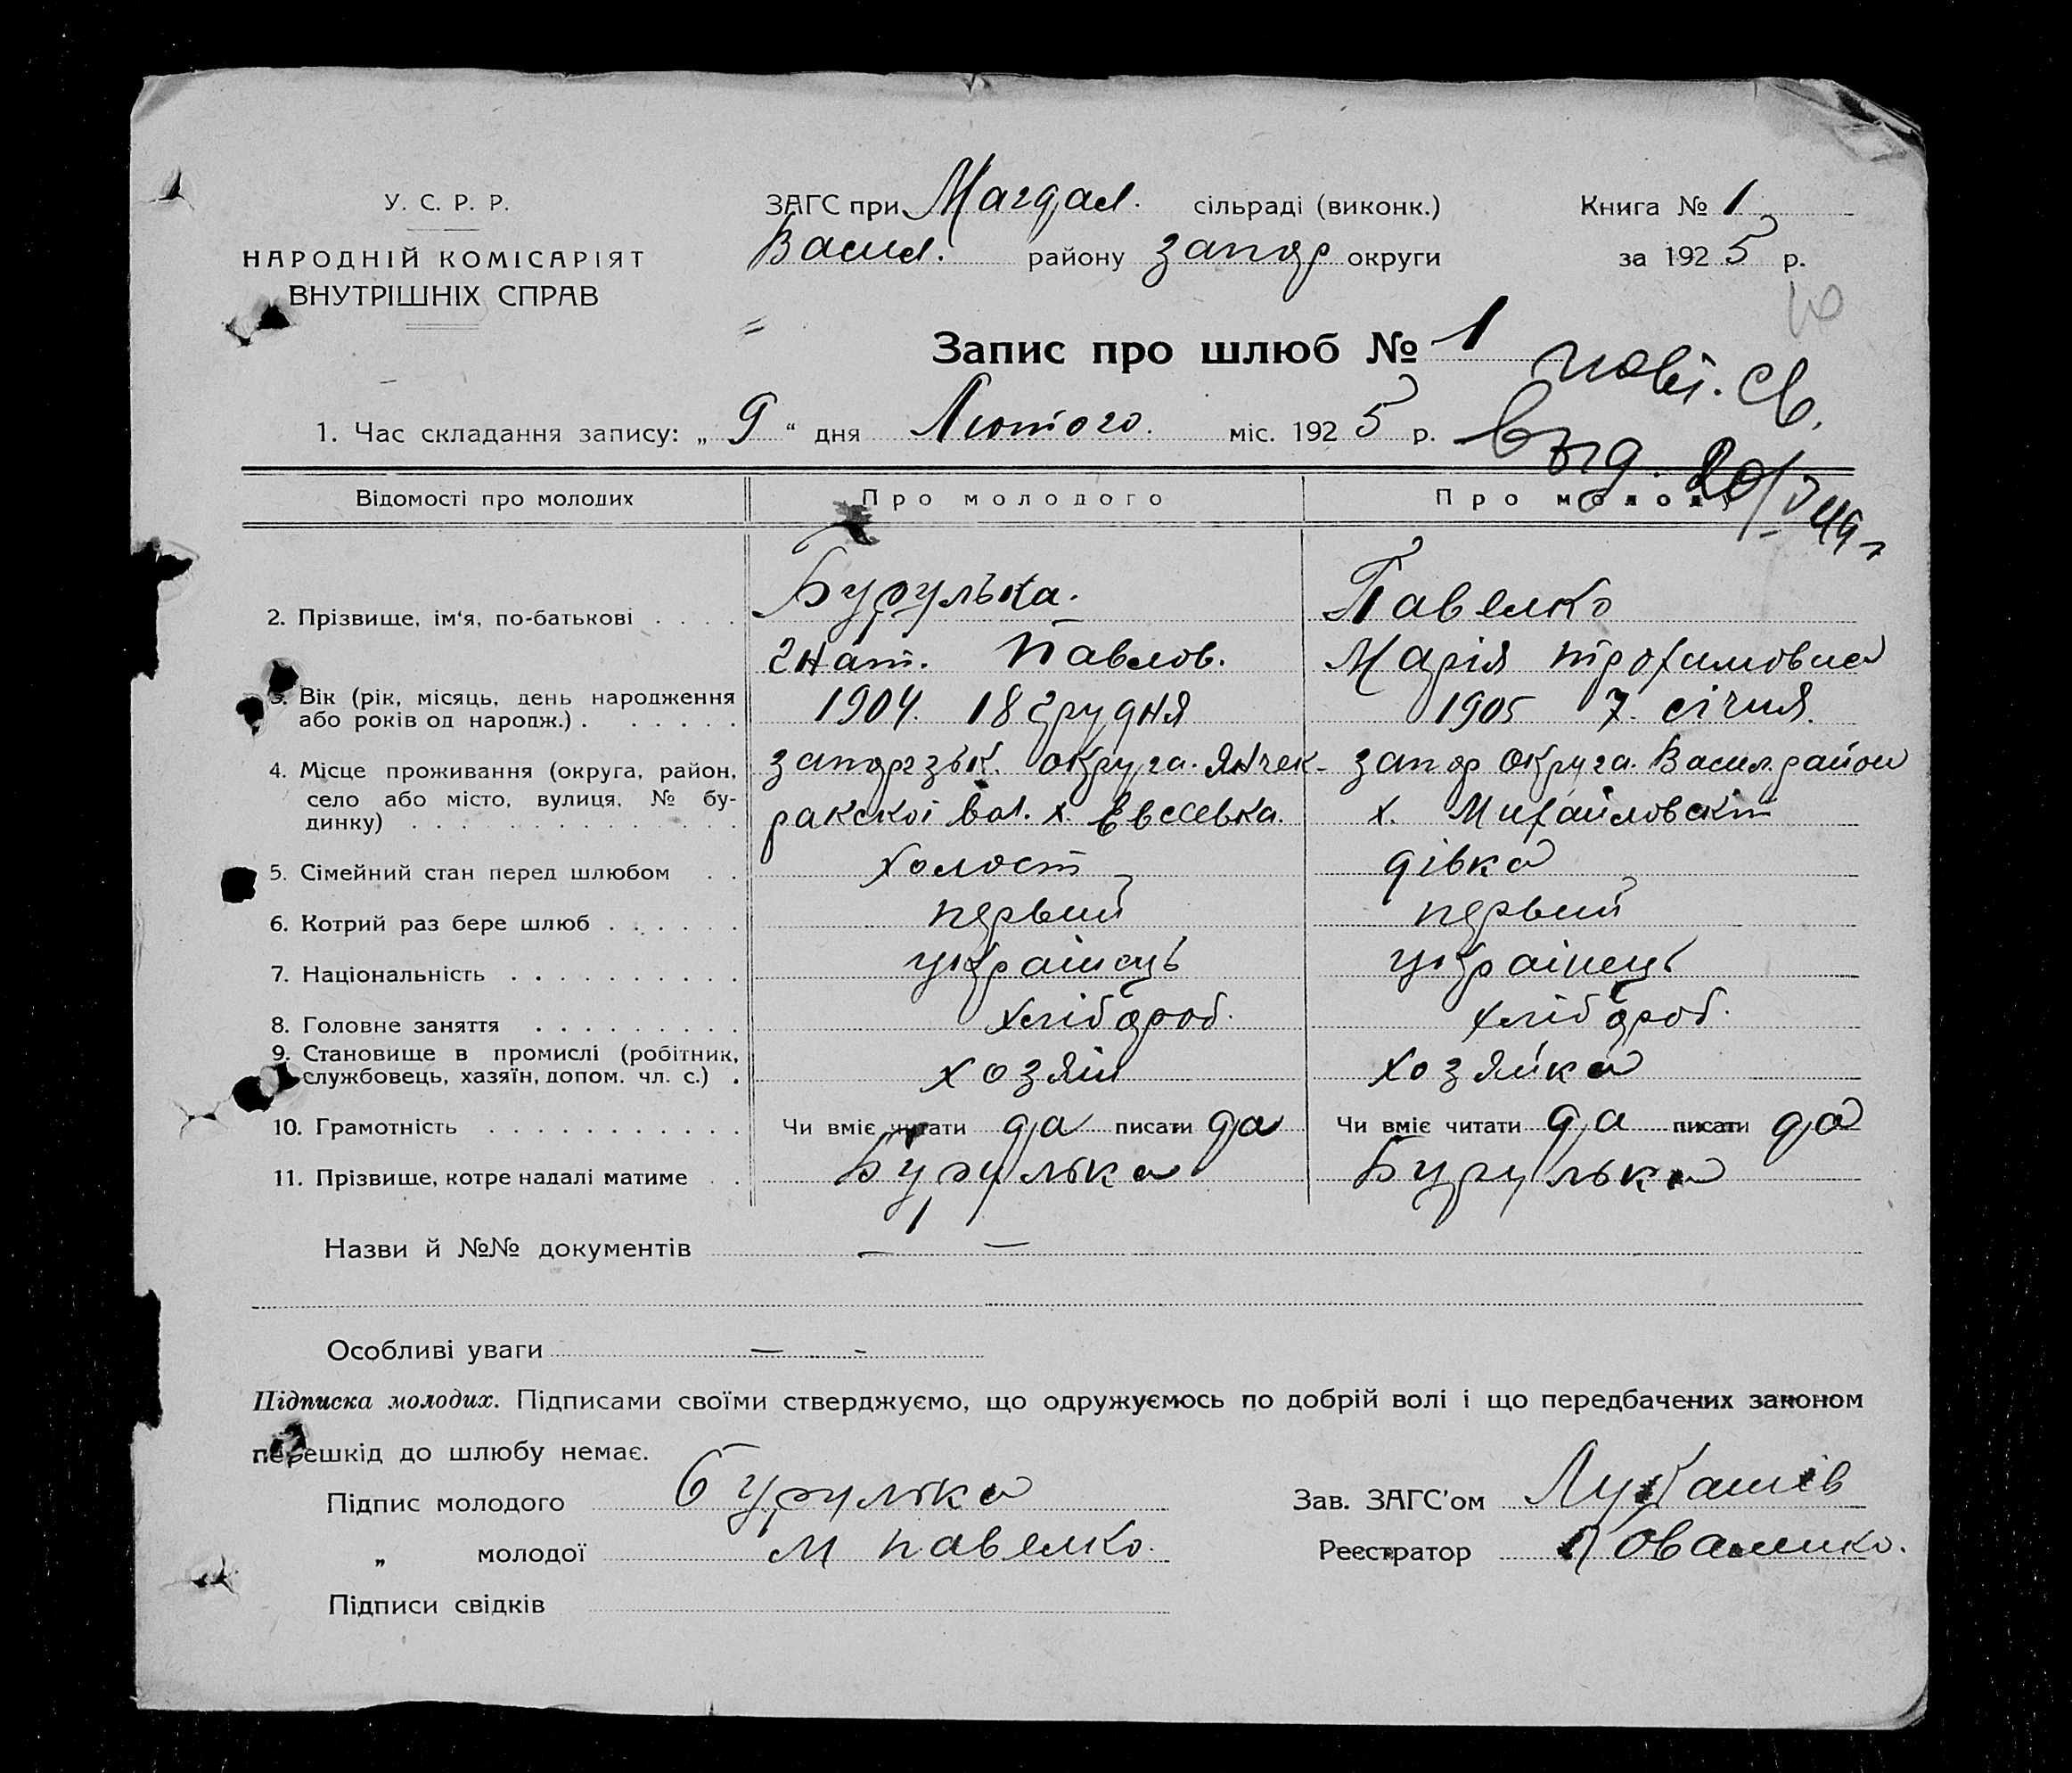 У. С. Р. Р.
НАРОДНІЙ КОМІСАРІЯТ
ВНУТРІШНІХ СПРАВ
ЗАГС при Магдал. сільраді (виконк.)
Васил. району Запор округи
Книга № 1
за 1925 р.
10
Запис про шлюб № 1
повт. св.
выд. 20/
1. Час складання запису: „ 9 “ дня Лютого. міс. 1925 р.
Відомості про молодих
Про молодого
Про молоду
2. Прізвище, ім‘я, по-батькові . . . .
Бурулька.
Гнат. Павлов.
Павелко
Марія Трофимовна
3. Вік (рік, місяць, день народження
або років од народж.) . . . . . .
1904. 18 грудня
1905 7. січня.
4. Місце проживання (округа, район,
село або місто, вулиця, № бу-
динку) . . . . . . . . . . . .
запорізьк. округа. Янчек-
ракскої вол. х. Евсеевка.
запор округа. Васил. район
х. Михайловскій
5. Сімейний стан перед шлюбом . .
холост
дівка
6. Котрий раз бере шлюб . . . . . .
первий
первий
7. Національність . . . . . . . . . .
українець
українець
8. Головне заняття . . . . . . . . .
хлібороб.
хлібороб.
9. Становище в промислі (робітник,
службовець, хазяїн, допом. чл. с.) .
хозяїн
хозяйка
10. Грамотність . . . . . . . . . . .
Чи вміє читати да писати да
Чи вміє читати да писати да
11. Прізвище, котре надалі матиме . .
Бурулька
Бурулька
Назви й №№ документів — —
Особливі уваги — -
Підписка молодих. Підписами своїми стверджуємо, що одружуємось по добрій волі і що передбачених законом
перешкід до шлюбу немає.
Підпис молодого Бурулька
„ молодої М Павелко.
Підписи свідків
Зав. ЗАГС’ом
Реєстратор Коваленко.